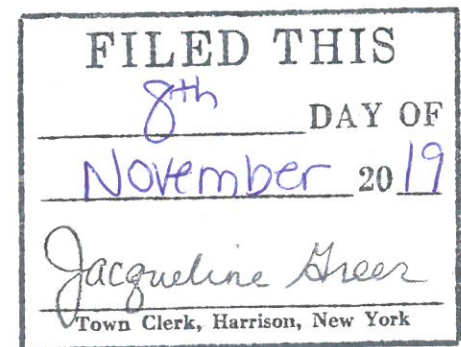 FILED THIS
8th DAY OF
November 2019
Jacqueline Greer
Town Clerk, Harrison, New York